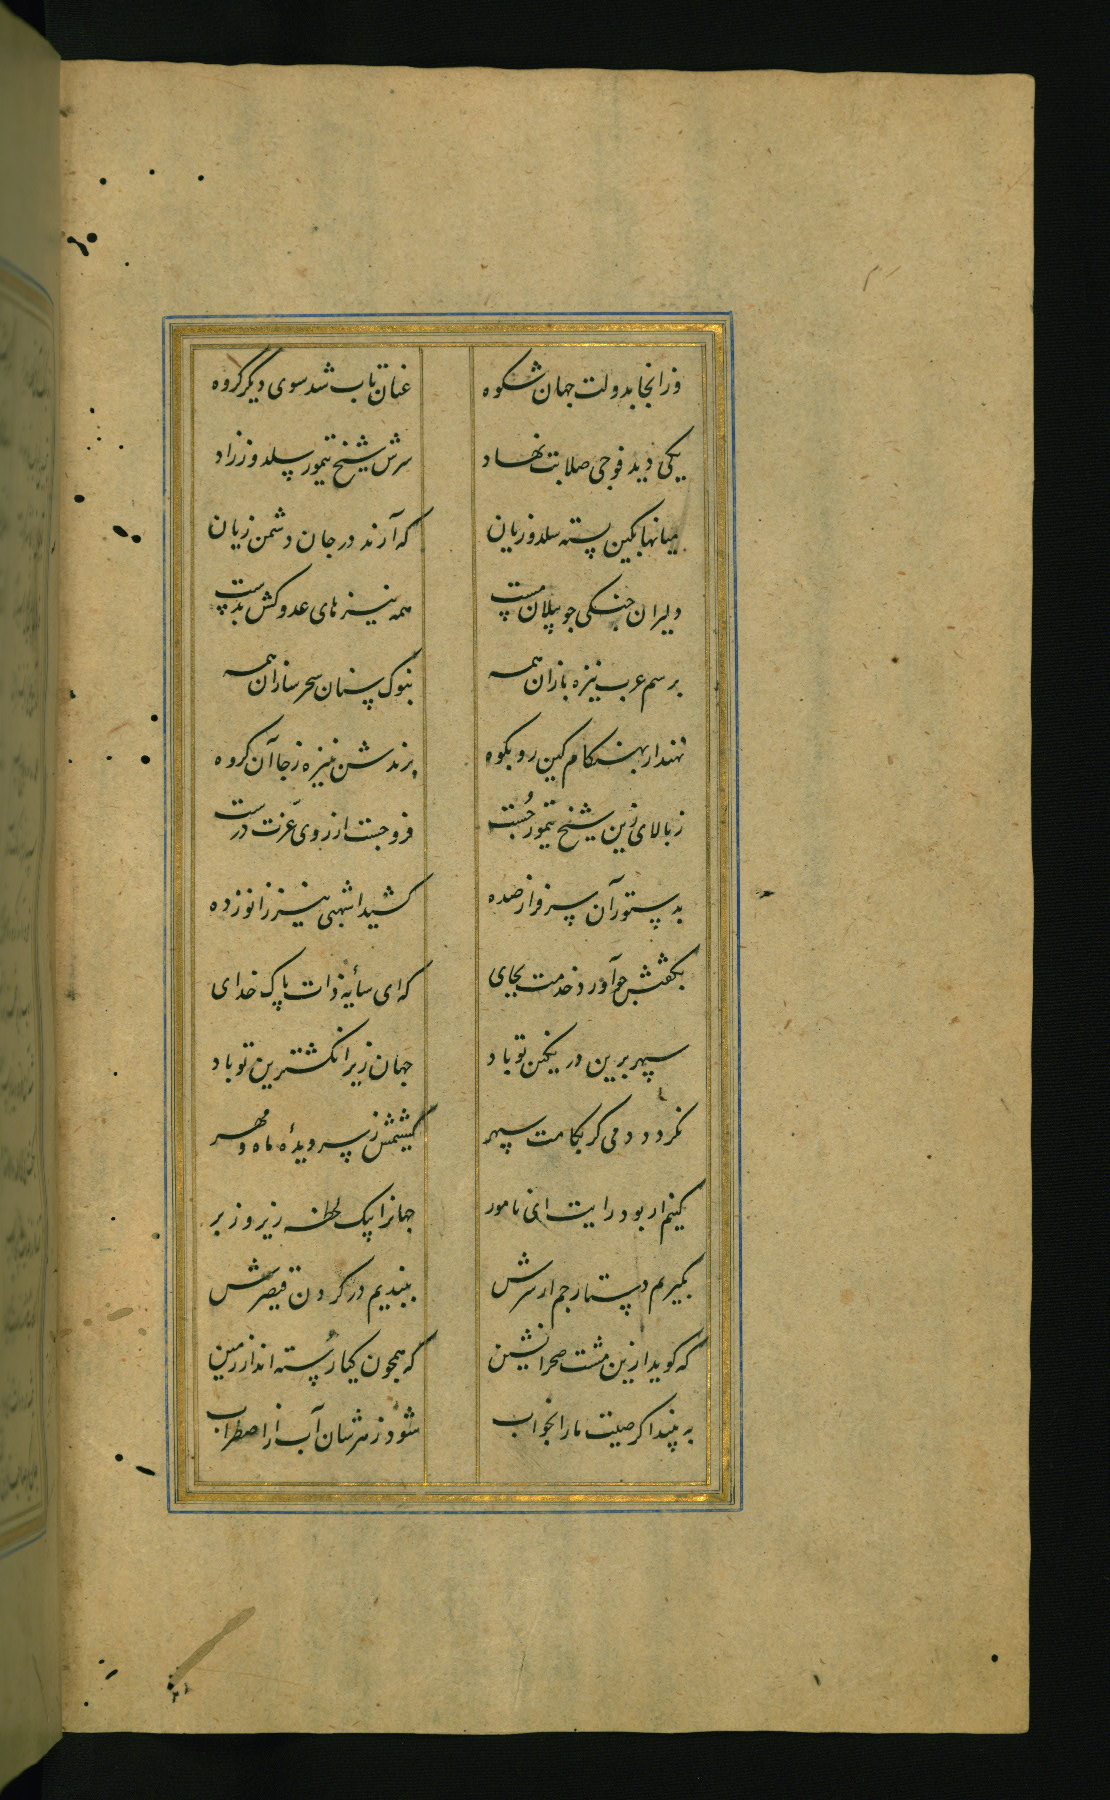 وزانجا بدولت جهان شکوه عنان تاب شد سوی دیگر گروه
یکی دید فوجی صلابت نهاد سرش شیخ تیمور سلدوز زاد
میانها بکین بسته سلدوزیان که آرند در جان دشمن زیان
دلیران جنکی جو پیلان مست همه نیزهای عدوکش بدست
برسم عرب نیزه بازان همه بنوک سنان سحرسازان همه
نهند ار بهنکام کین رو بکوه برندش بنیزه ز جا آن کروه
ز بالای زین شیخ تیمور جست فروجست از روی عزت درست
بدستور آن سرفراز صده کشید اشهبی نیز زانو زده
بکفتش چو آورد خدمت بجای که ای سایهٔ ذات پاک خدای
سپهر برین در نکین تو باد جهان زیر انکشترین تو باد
نکردد دمی کر بکامت سپهر کشیمش ز سر دیدهٔ ماه و مهر
کنیم ار بود رایت ای نامور جهانرا بیک لحظه زیر و زبر
بکیریم دستار جم از سرش ببندیم در کردن قیصرش
که کوید ازین مشت صحرانشین که همچون کیا رسته اند از زمین
به بیند اکر صیت ما را بخواب شود زهرشان آب از اضطراب